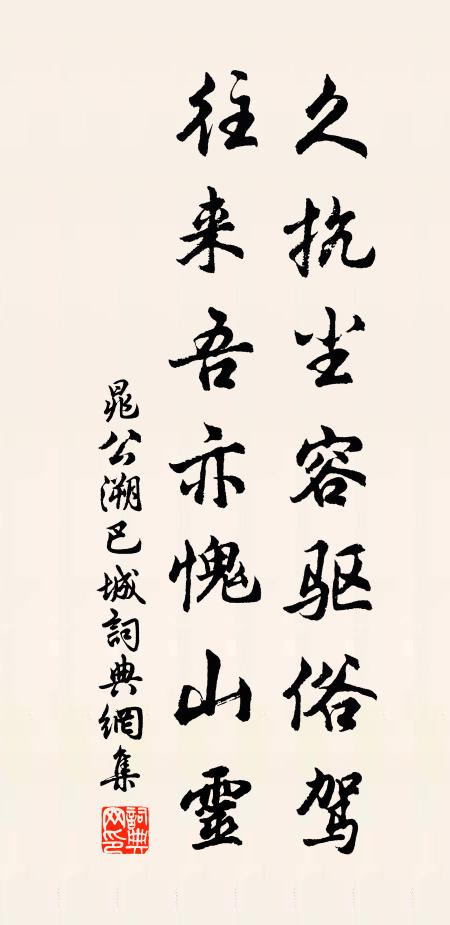 久抗尘容驱俗驾
往来吾亦愧山靈
晁公溯巴城詞典網集
詞典网印